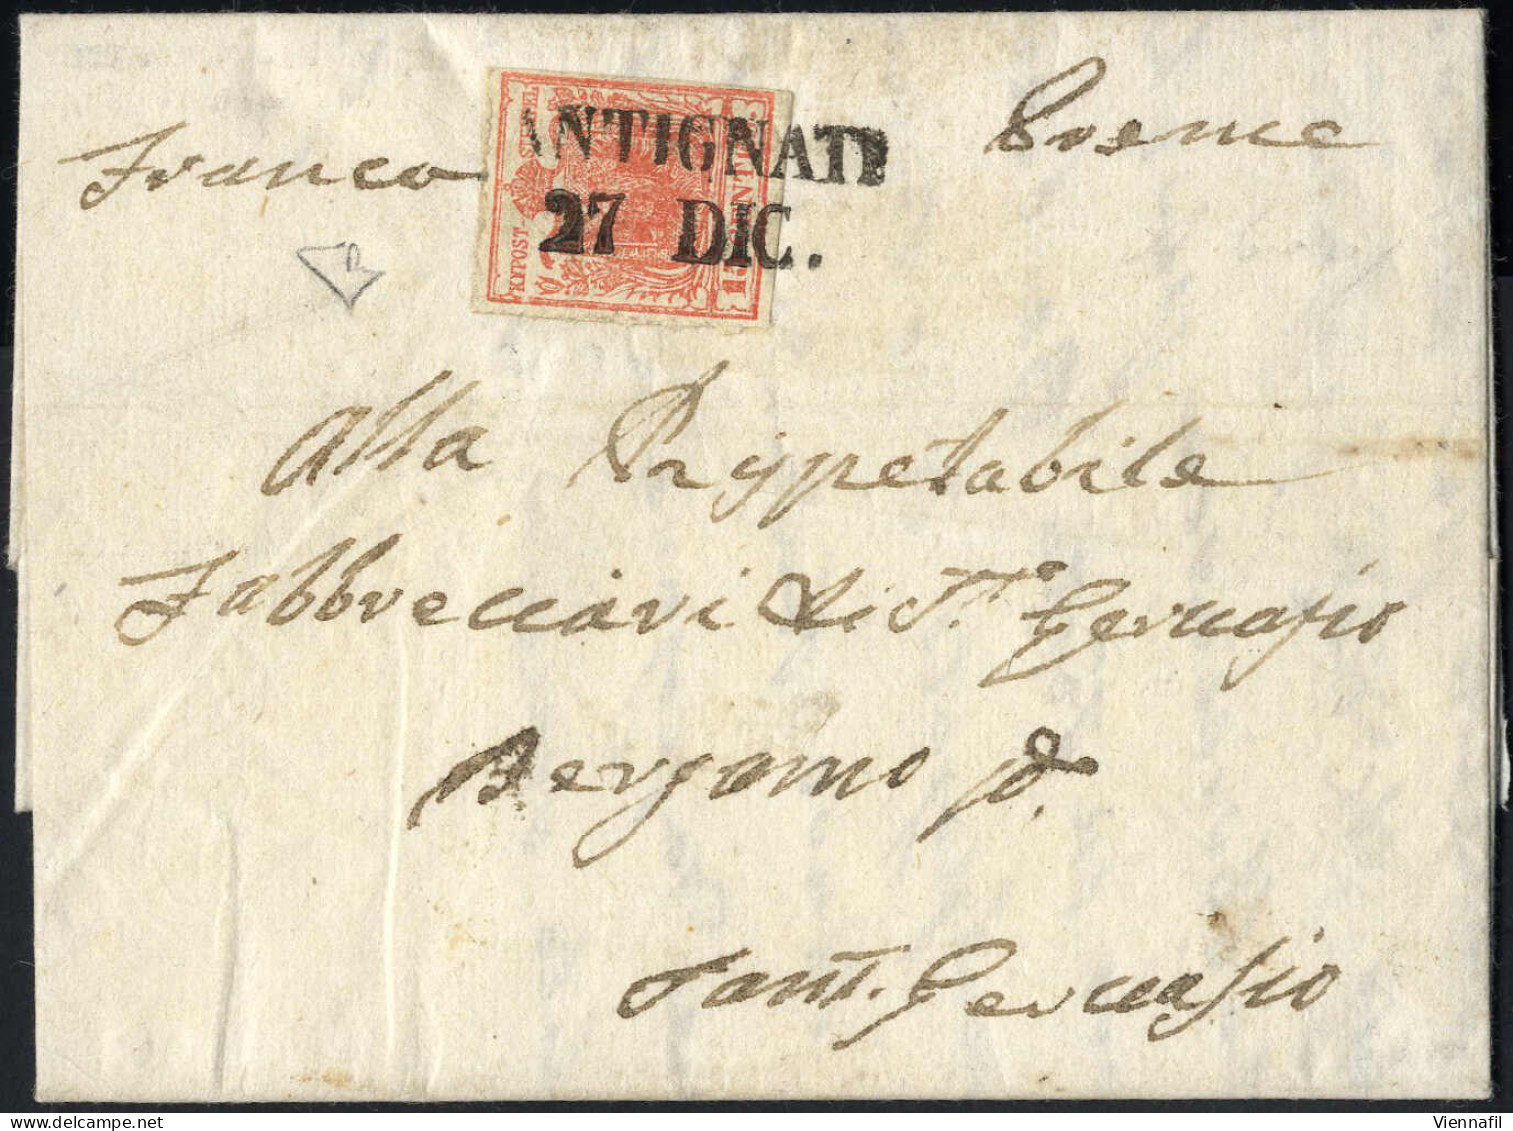 Franco
Preme
ANTIGNATE
27 DIC.
KKPOST-STEMPEL
15 CENTES
Alla Rispetabile
Fabbreccieri di St. Gervasio
Bergamo p.
Sant. Gervasio
Viennafil